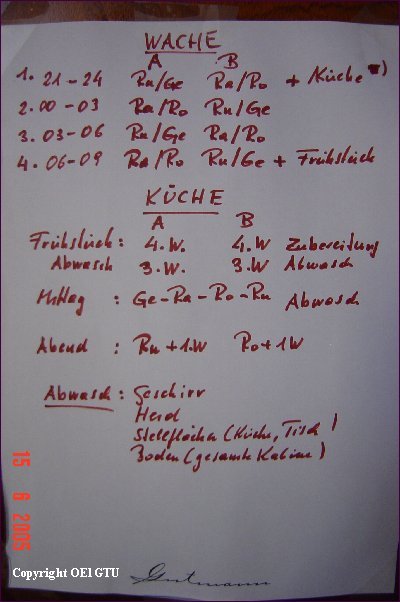 WACHE
A B
1. 21-24 Ru/Ge Ra/Ro + Küche *)
2. 00-03 Ra/Ro Ru/Ge
3. 03-06 Ru/Ge Ra/Ro
4. 06-09 Ra/Ro Ru/Ge + Frühstück
KÜCHE
A B
Frühstück: 4.W. 4.W Zubereitung
Abwasch 3.W. 3.W Abwasch
Mittag : Ge-Ra-Ro-Ru Abwasch
Abend : Ru+1.W Ro+1W
Abwasch: Geschirr
Herd
Stellflächen (Küche, Tisch)
Boden (gesamte Kabine)
15 6 2005
Copyright OEl GTU
Gutmann